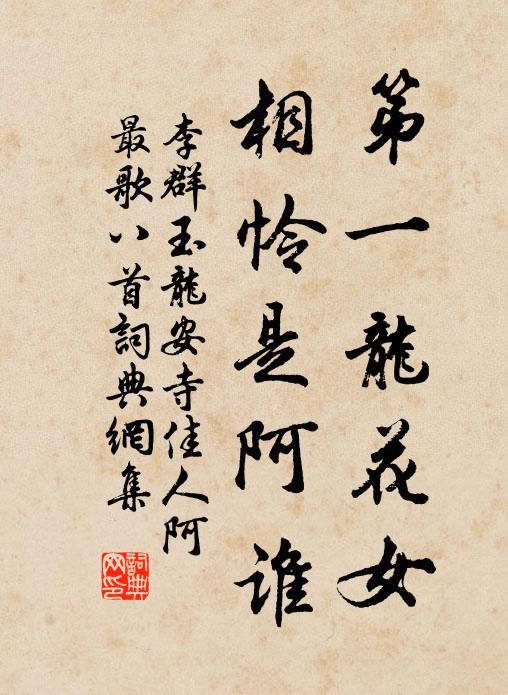 第一龍花女
相怜是阿誰
李群玉龍安寺佳人阿
最歌八首詞典網集
詞典
网印